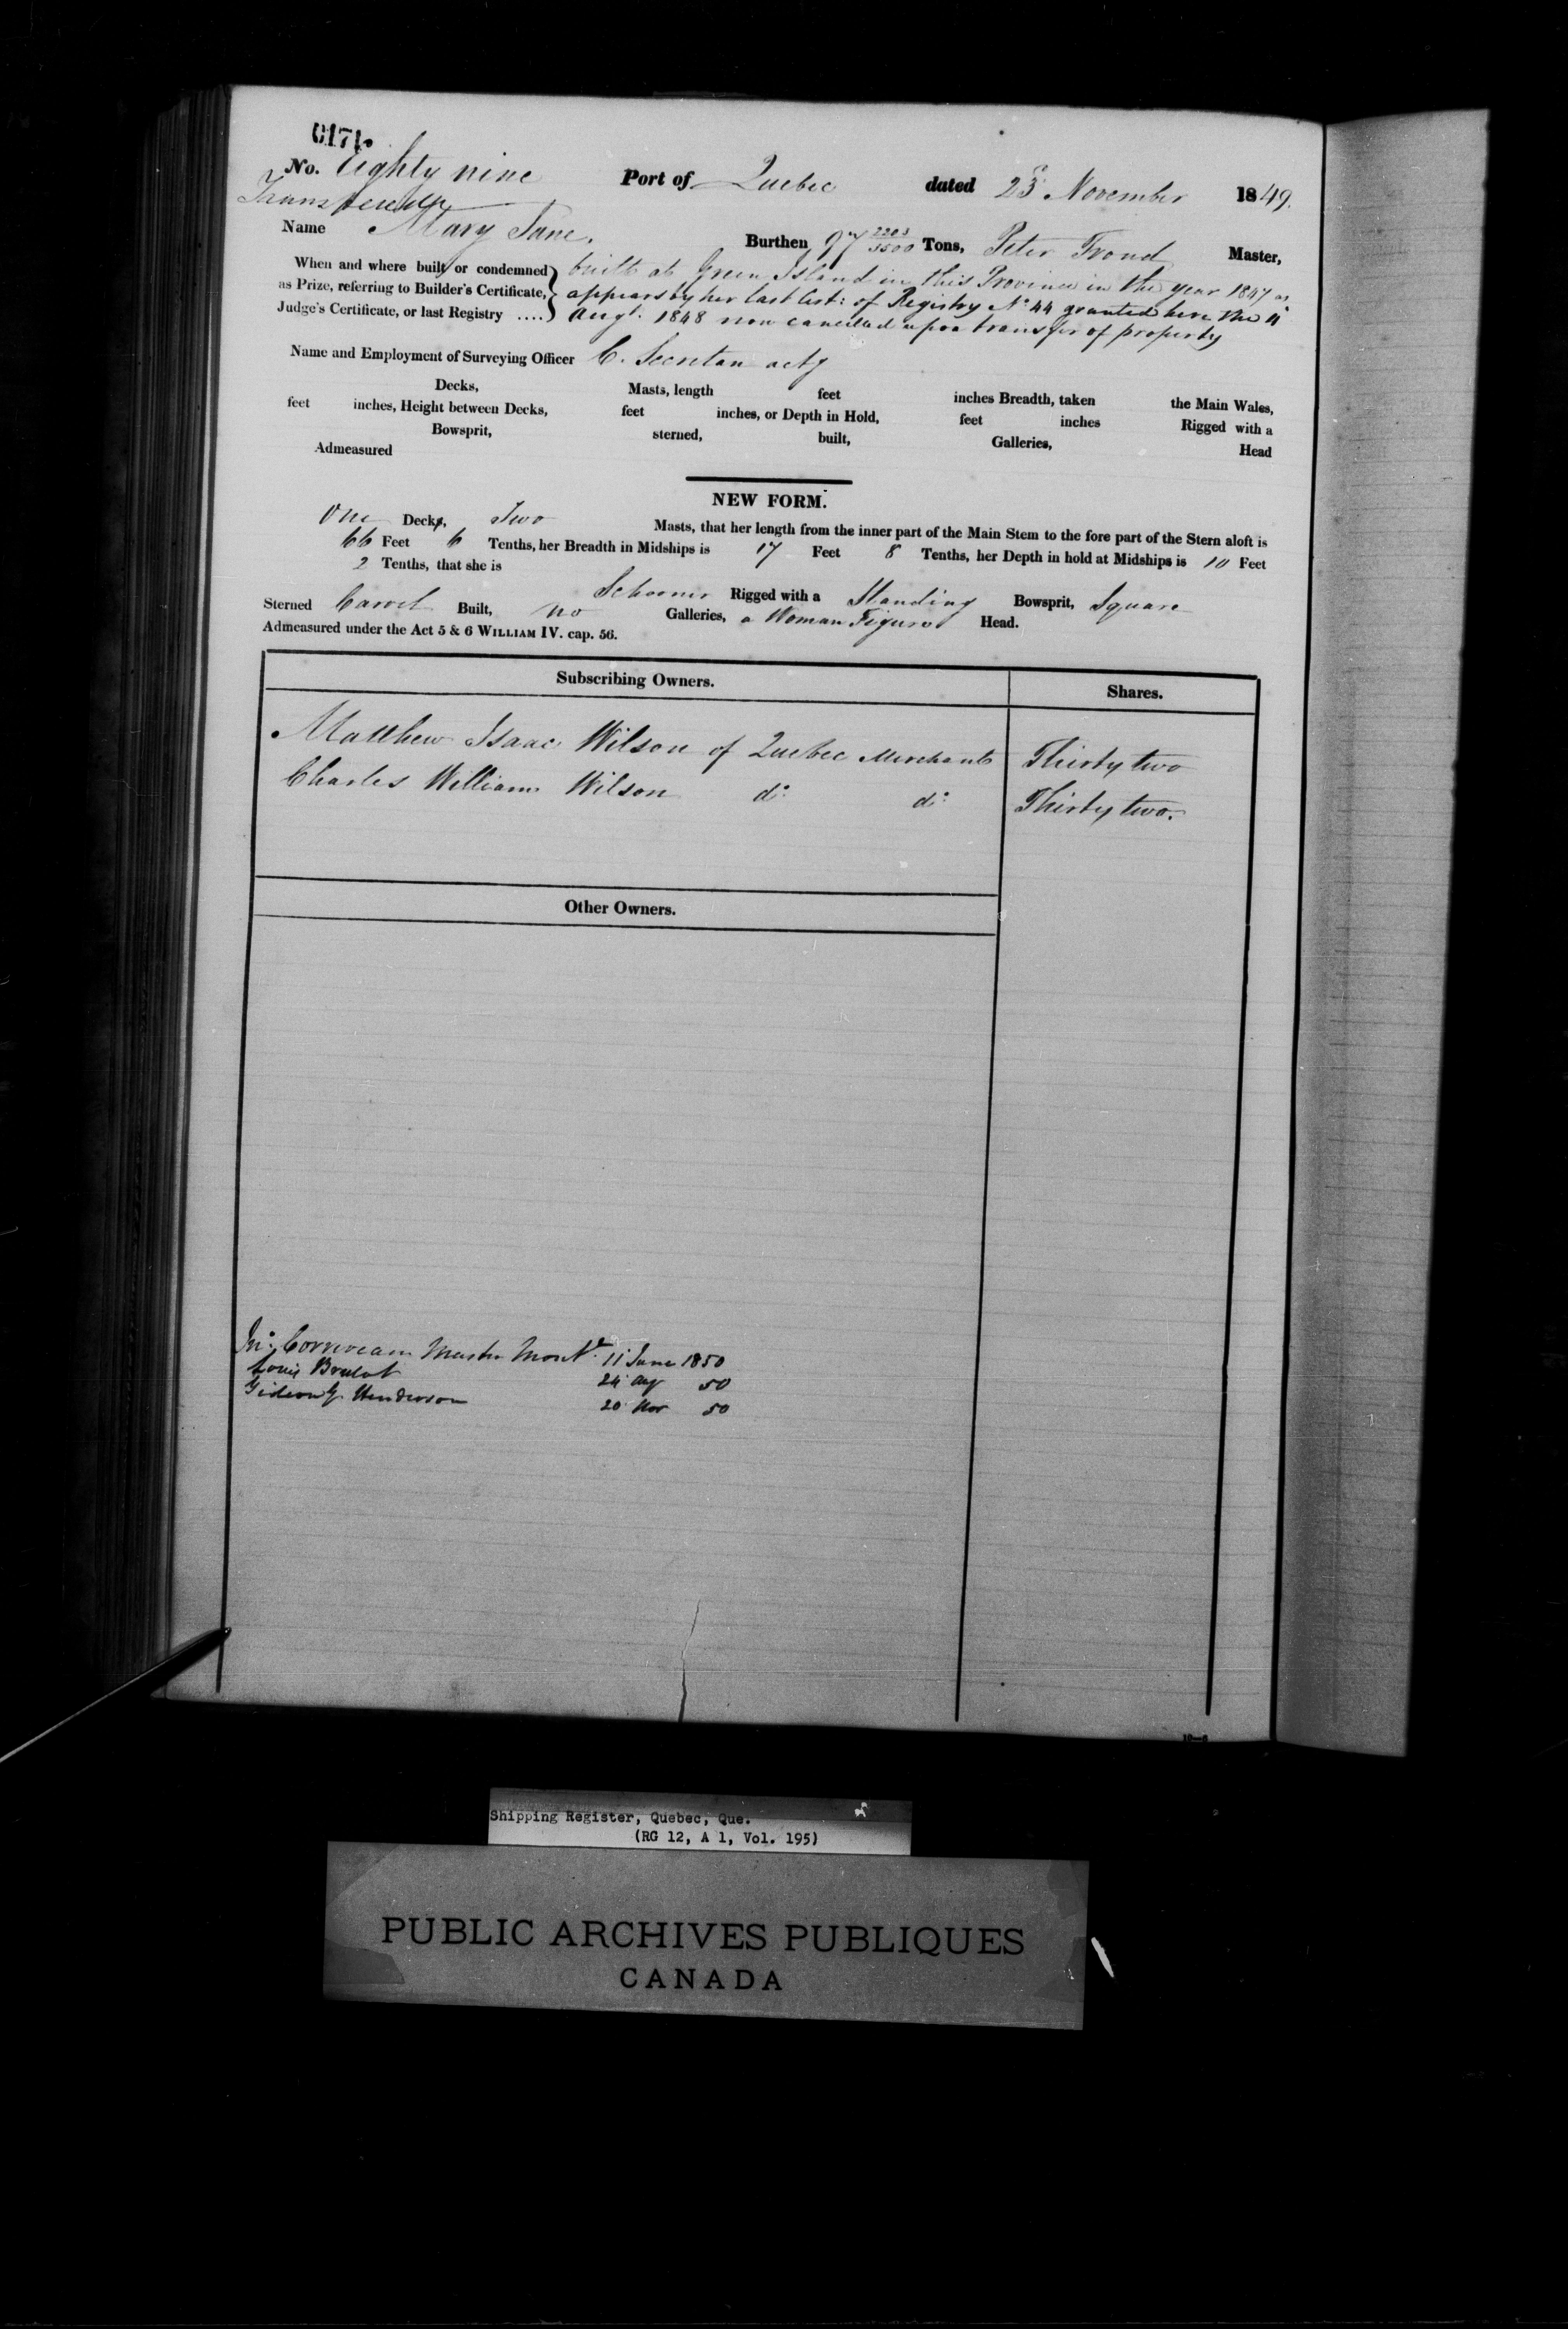 0171.
No. Eighty nine Port of Quebec dated 23d November 1849.
Name Mary Jane. Burthen 97 2203/3500 Tons, Peter Trond Master,
When and where built or condemned built at Green Island in this Province in the year 1847 as
as Prize, referring to Builder's Certificate, appears by her last Cert: of Registry No 44 granted here the
Judge's Certificate, or last Registry .... Augt. 1848 now cancelled upon transfer of property
Name and Employment of Surveying Officer C. Secretan actg
Decks, Masts, length feet inches Breadth, taken the Main Wales,
feet inches, Height between Decks, feet inches, or Depth in Hold, feet inches Rigged with a
Bowsprit, sterned, built, Galleries, Head
Admeasured
NEW FORM.
One Deck, Two Masts, that her length from the inner part of the Main Stem to the fore part of the Stern aloft is
66 Feet 6 Tenths, her Breadth in Midships is 17 Feet 8 Tenths, her Depth in hold at Midships is 10 Feet
2 Tenths, that she is Schooner Rigged with a Standing Bowsprit, Square
Sterned Carvel Built, no Galleries, a Woman Figure Head.
Admeasured under the Act 5 & 6 WILLIAM IV. cap. 56.
Subscribing Owners. Shares.
Matthew Isaac Wilson of Quebec Merchants Thirty two
Charles William Wilson do do Thirty two.
Other Owners.
Jno. Corriveau Master Montl. 11 June 1850
Louis Brulot 24 Aug 50
Gideon G. Henderson 20 Nov 50
10—6
Shipping Register, Quebec, Que.
(RG 12, A 1, Vol. 195)
PUBLIC ARCHIVES PUBLIQUES
CANADA